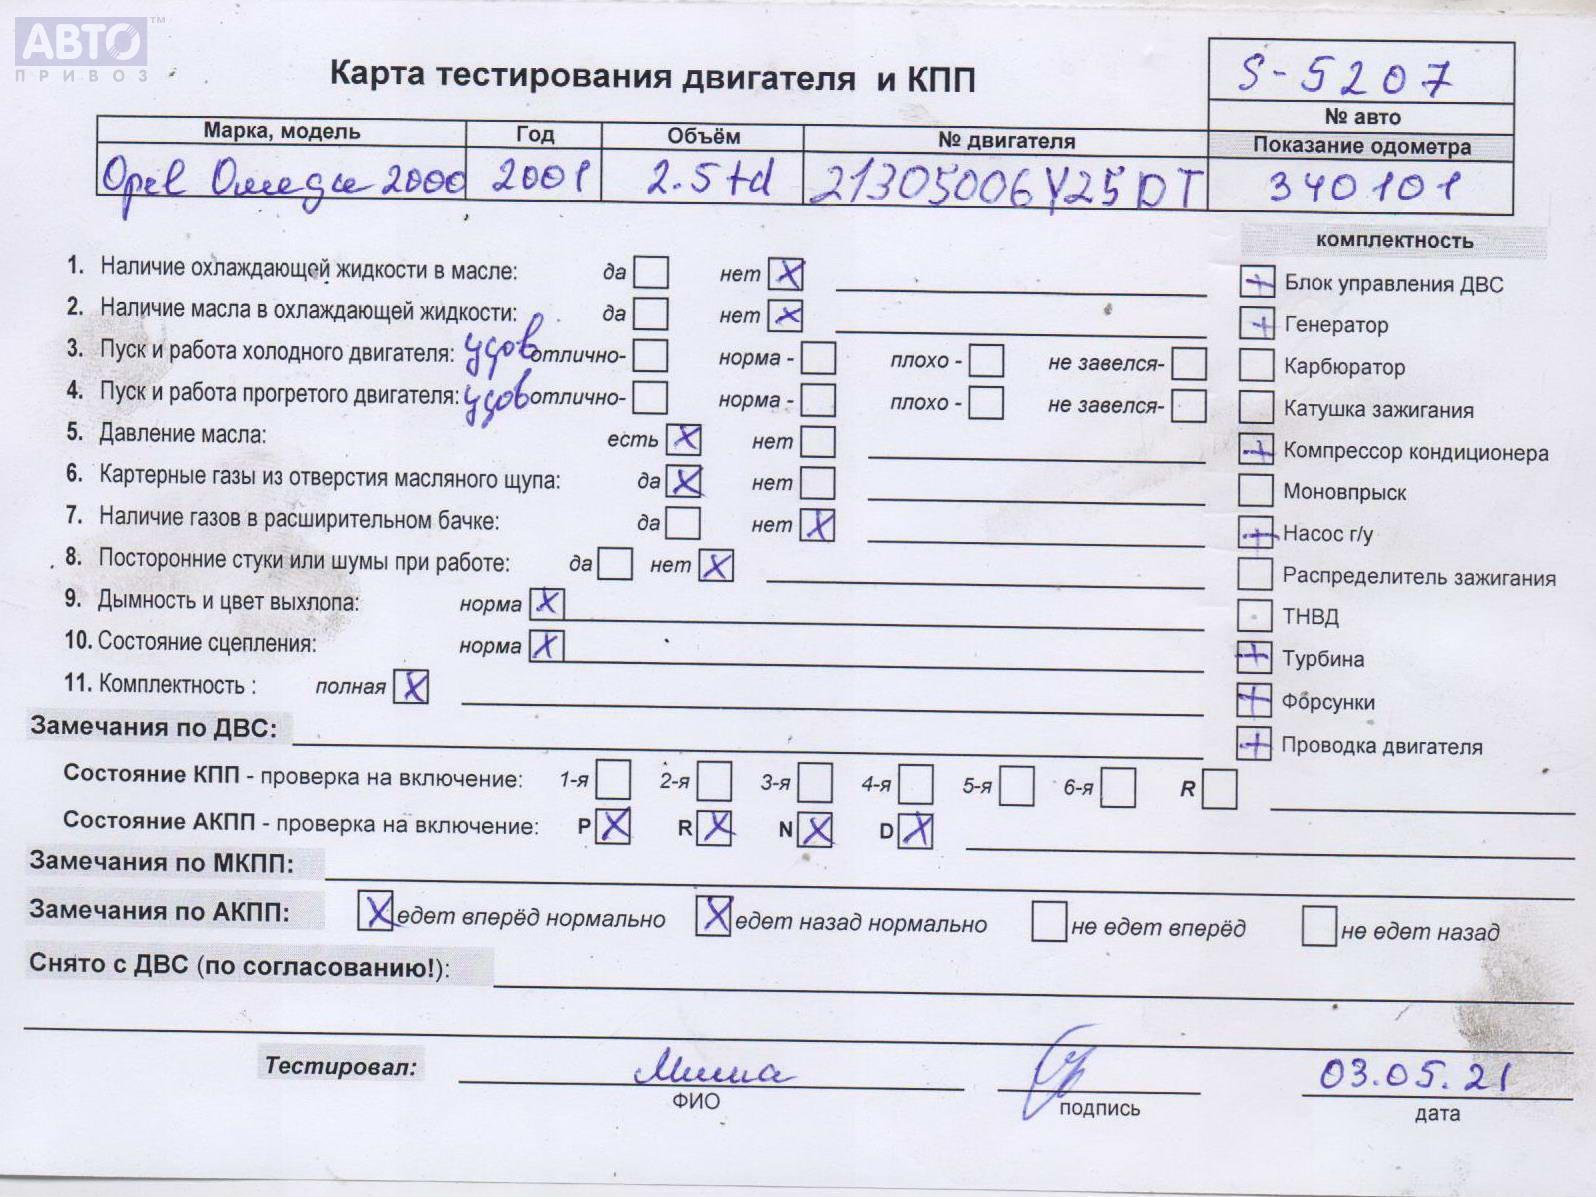 АВТО ™
ПРИВОЗ
Карта тестирования двигателя и КПП
S-5207
№ авто
Марка, модель Год Объём № двигателя Показание одометра
Opel Омега 2000 2001 2.5td 21305006Y25DT 340101
комплектность
1. Наличие охлаждающей жидкости в масле: да нет X
2. Наличие масла в охлаждающей жидкости: да нет X
3. Пуск и работа холодного двигателя: удов отлично- норма - плохо - не завелся-
4. Пуск и работа прогретого двигателя: удов отлично- норма - плохо - не завелся-
5. Давление масла: есть X нет
6. Картерные газы из отверстия масляного щупа: да X нет
7. Наличие газов в расширительном бачке: да нет X
8. Посторонние стуки или шумы при работе: да нет X
9. Дымность и цвет выхлопа: норма X
10. Состояние сцепления: норма X
11. Комплектность : полная X
+ Блок управления ДВС
+ Генератор
Карбюратор
Катушка зажигания
+ Компрессор кондиционера
Моновпрыск
+ Насос г/у
Распределитель зажигания
ТНВД
+ Турбина
+ Форсунки
+ Проводка двигателя
Замечания по ДВС:
Состояние КПП - проверка на включение: 1-я 2-я 3-я 4-я 5-я 6-я R
Состояние АКПП - проверка на включение: P X R X N X D X
Замечания по МКПП:
Замечания по АКПП: X едет вперёд нормально X едет назад нормально не едет вперёд не едет назад
Снято с ДВС (по согласованию!):
Тестировал: Миша 03.05.21
ФИО подпись дата